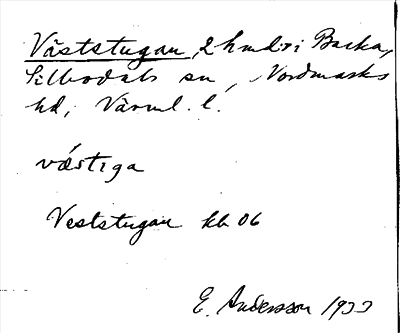 Väststugan, 2 hmd: i Backa,
Silbodals sn, Nordmarks
hd, Värml. l.
væstiga
Veststugan kb 06
E. Andersson 1933